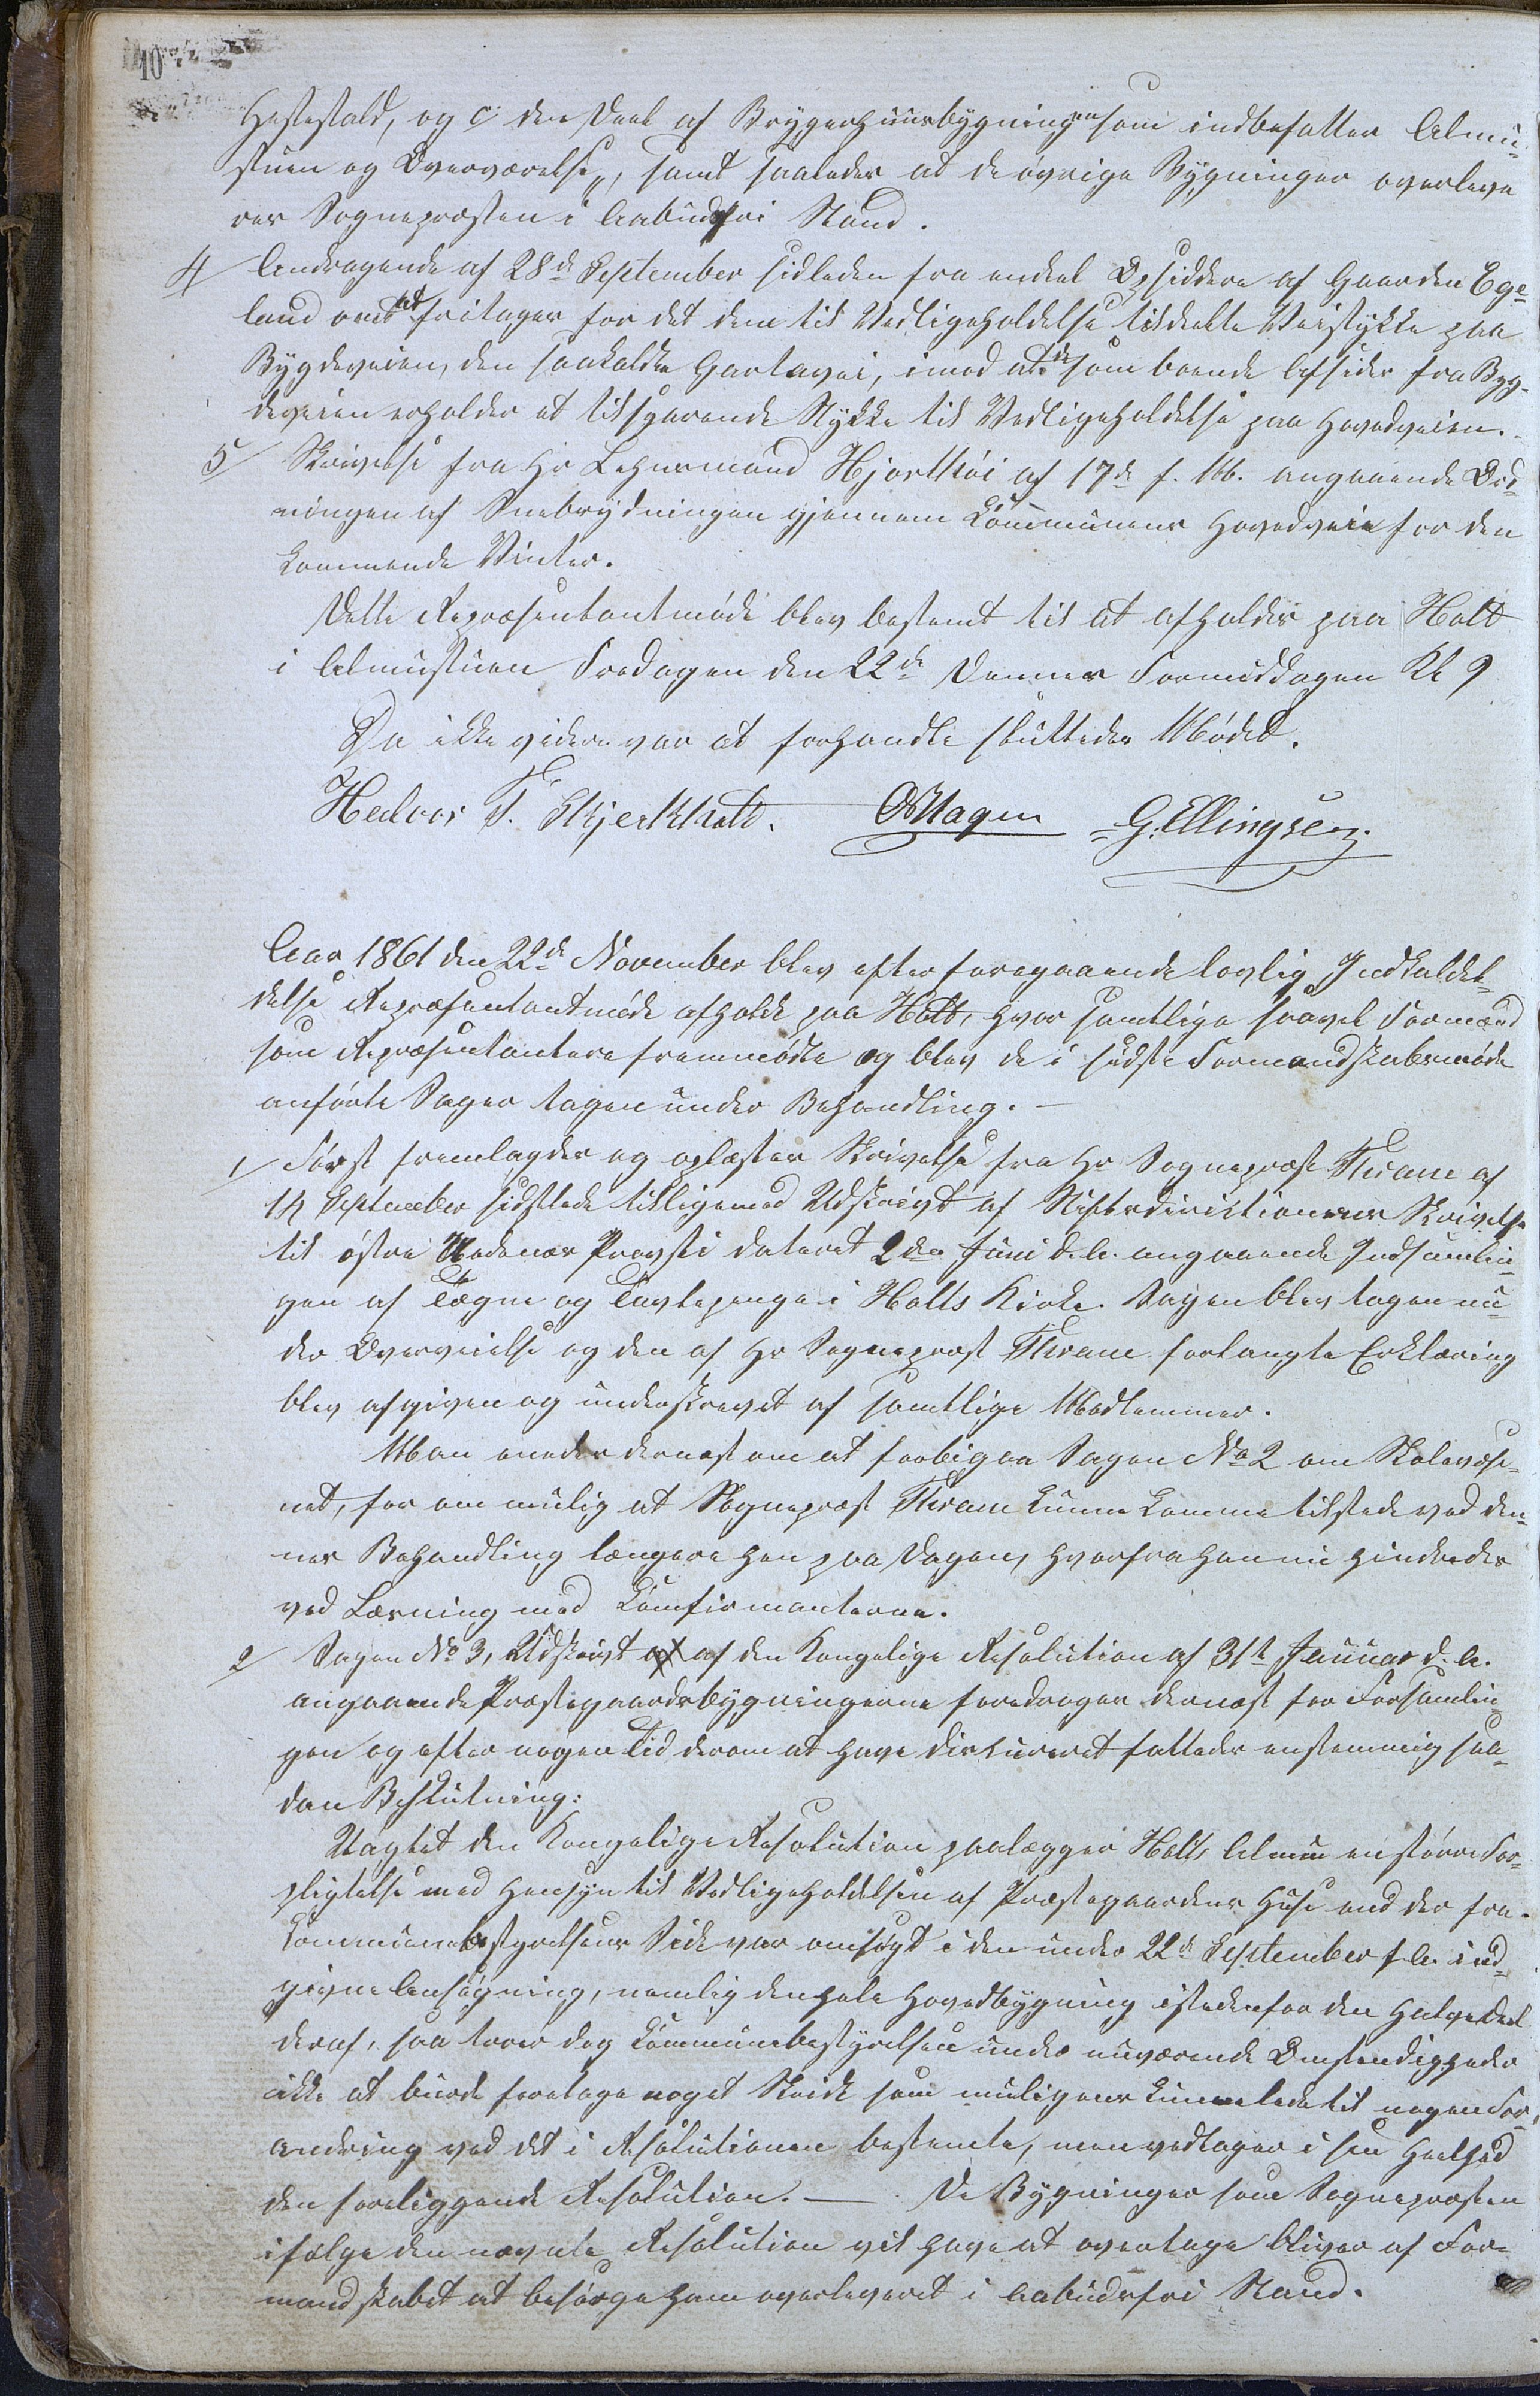 10
Hestestald, og c den Deel af Bryggerhuusbygningen som indbefatter Almu-
stuen og Overværelse, samt saaledes at de øvrige Bygninger overleve
res Sognepræsten i Aabudsfri Stand.
4/ Andragende af 28de September sidleden fra endeel Opsiddere af Gaarden Ege
land om at fritages for det dem til Vedligeholdelse tildeelte Veistykke paa
Bygdeveien, den saakaldte Gartavei, imod at de som boende Afsides fra Byg-
deveien erholder et tilsvarende Stykke til Vedligeholdelse paa Hovedveien.
5/ Skrivelse fra Hr Lehnsmand Hjorthøi af 17de f. M. angaaende Ord-
ningen af Snebrydningen gjennem Communens Hovedveie for den
kommende Vinter.
Dette Repræsentantmøde blev bestemt til at afholdes paa Holt
i Almustuen Fredagen den 22de dennes Formiddagen Kl 9
Da ikke videre var at forhandle sluttedes Mødet.
Hedvar T. Skjerkholt. O Hagen G. Ellingsen.
Aar 1861 den 22de November blev efter foregaaende lovlig Indkaldel-
delse Repræsentantmøde afholdt paa Holt, hvor samtlige saavel Formænd
som Repræsentantere fremmødte og blev de i sidste Formandskabsmøde
anførte Sager tagen under Behandling. —
1/ Først fremlagdes og oplæstes Skrivelse fra Hr Sognepræst Thrane af
14 September sidstleden tilligemed Udskrivt af Stiftsdirectionens Skrivelse
til østre Nedenæs Provsti dateret 2den Juni d. A. angaaende Indsamlin-
gen af Tægne og Tavlepenge i Holts Kirke. Sagen blev tagen un-
der Overveielse og den af Hr Sognepræst Thrane forlangte Erklæring
blev afgiven og underskrevet af samtlige Medlemmer.
Man enedes dernæst om at forbigaa Sagen No 2 om Skolevæse-
net, for om mulig at Sognepræst Thrane kunne komme tilstede ved den-
nes Behandling længere hen paa Dagen, hvorfra han nu hindredes
ved Læsning med Comfirmanterne.
2/ Sagen No 3, Udskrivt af af den Kongelige Resolution af 31te Januar d. A.
angaaende Præstegaardsbygningerne foredroges dernæst for Forsamlin-
gen og efter nogen Tid derom at have diskureret fattedes enstemmig saa-
dan Beslutning:
Uagtet den Kongelige Resolution paalægger Holts Almue en større For-
pligtelse med Hensyn til Vedligeholdelsen af Præstegaardens Huse end der fra
Communebestyrelsens Side var ansøgt i den under 22de September f. A. ind-
givne Ansøgning, nemlig den hele Hovedbygning istedenfor den halve Deel
deraf, saa troer dog Communebestyrelsen under nuværende Omstendigheder
ikke at burde foretage noget Skridt som muligens kunne lede til nogen For-
andring ved det i Resolutionen bestemte, men vedtager i sin Heelhed
den foreliggende Resolution. — De Bygninger som Sognepræsten
ifølge den nævnte Resolution vil have at overtage bliver af For-
mandskabet at besørge ham overleveret i Aabudsfri Stand.